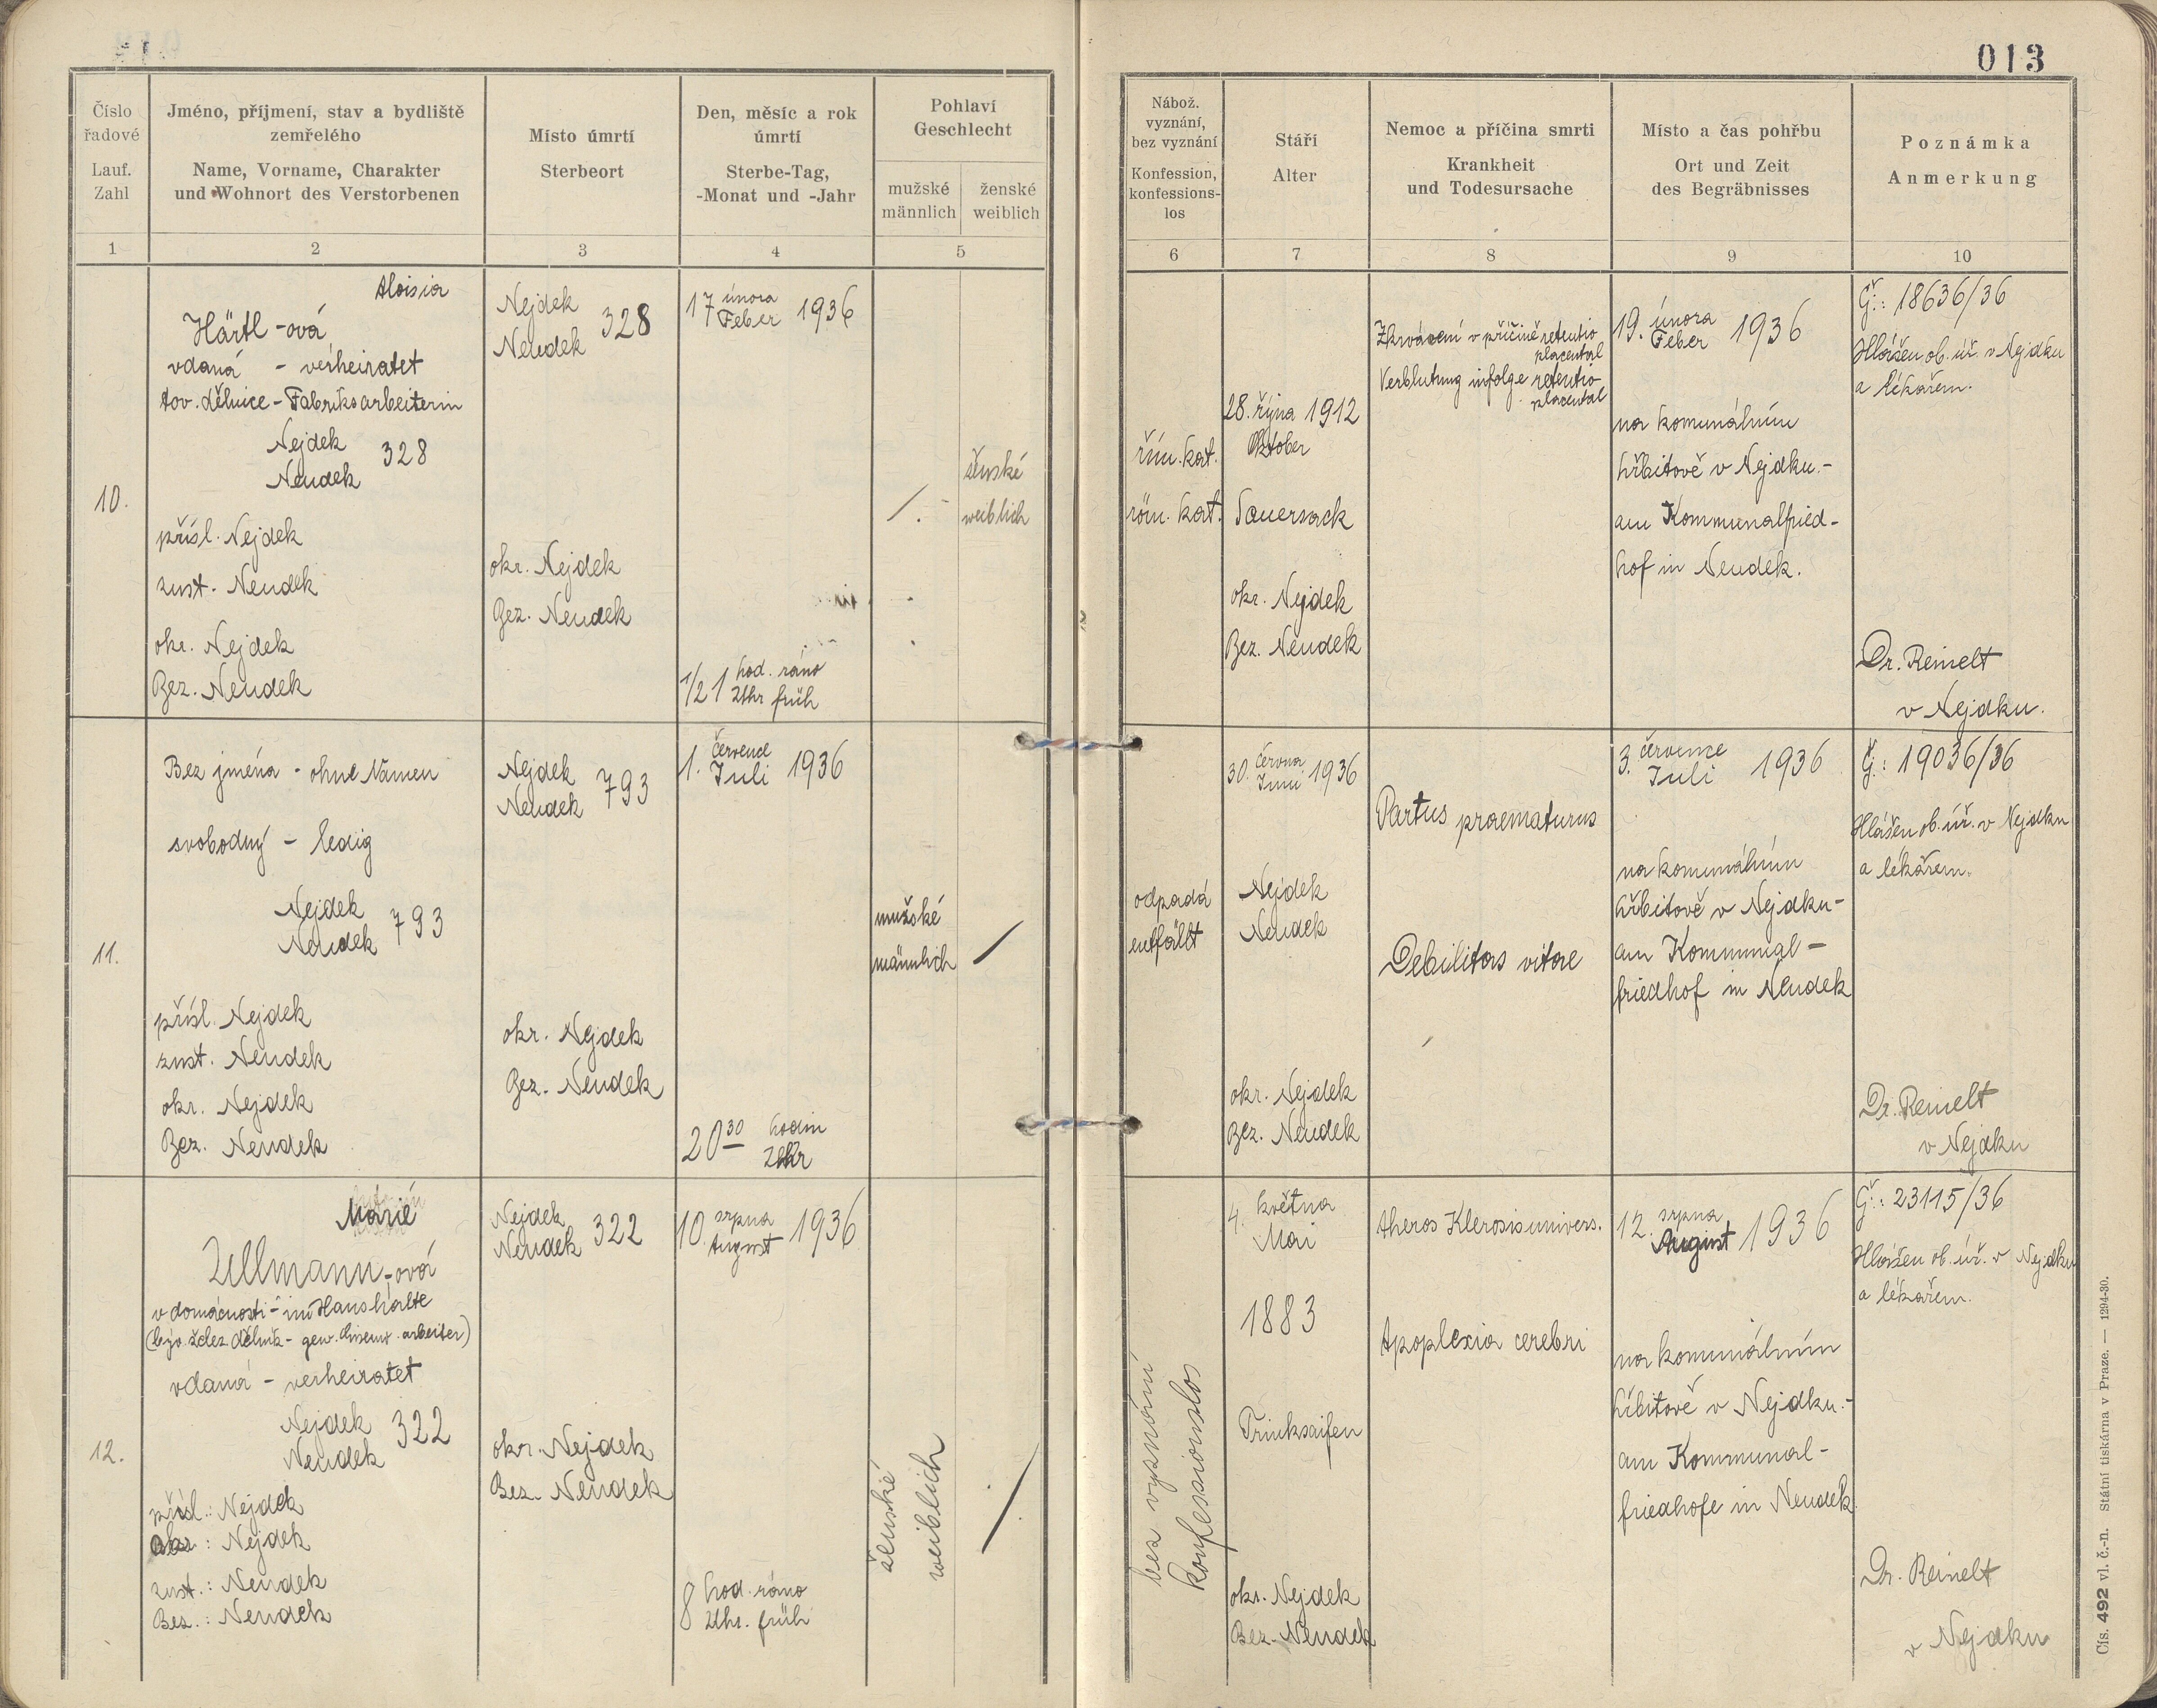 013
Číslo
řadové
Lauf.
Zahl
Jméno, příjmení, stav a bydliště
zemřelého
Name, Vorname, Charakter
und Wohnort des Verstorbenen
Místo úmrtí
Sterbeort
Den, měsíc a rok
úmrtí
Sterbe-Tag,
-Monat und -Jahr
Pohlaví
Geschlecht
mužské
männlich
ženské
weiblich
Nábož.
vyznání,
bez vyznání
Konfession,
konfessions-
los
Stáří
Alter
Nemoc a příčina smrti
Krankheit
und Todesursache
Místo a čas pohřbu
Ort und Zeit
des Begräbnisses
Poznámka
Anmerkung
1 2 3 4 5 6 7 8 9 10
10.
Aloisia
Härtl-ová
vdaná - verheiratet
tov. dělnice - Fabriksarbeiterin
Nejdek
Neudek 328
přísl. Nejdek
zust. Neudek
okr. Nejdek
Bez. Neudek
Nejdek
Neudek 328
okr. Nejdek
Bez. Neudek
17 února
Feber 1936
1/2 1 hod. ráno
Uhr früh
/.
ženské
weiblich
řím. kat.
röm. kat.
28. října 1912
Oktober
Sauersack
okr. Nejdek
Bez. Neudek
Zkrvácení v příčině retentio
placental
Verblutung infolge retentio
placental
19. února
Feber 1936
na komunálním
hřbitově v Nejdku.-
am Kommunalfried-
hof in Neudek.
Č.j.: 18636/36
Hlášen ob. úř. v Nejdku
a lékařem.
Dr. Reinelt
v Nejdku.
11.
Bez jména - ohne Namen
svobodný - ledig
Nejdek
Neudek 793
přísl. Nejdek
zust. Neudek
okr. Nejdek
Bez. Neudek
Nejdek
Neudek 793
okr. Nejdek
Bez. Neudek
1. července
Juli 1936
20 30 hodin
Uhr
mužské
männlich
/
odpadá
entfällt
30. června
Juni 1936
Nejdek
Neudek
okr. Nejdek
Bez. Neudek
Partus praematurus
Debilitas vitae
3. července
Juli 1936
na komunálním
hřbitově v Nejdku-
am Kommunal-
friedhof in Neudek
Č.j.: 19036/36
Hlášen ob. úř. v Nejdku
a lékařem.
Dr. Reinelt
v Nejdku
12.
Marie
Ullmann-ová
v domácnosti - im Haushalte
(býv. želez. dělník - gew. arbeiter)
vdaná - verheiratet
Nejdek
Neudek 322
přísl.: Nejdek
okr.: Nejdek
zust.: Neudek
Bez.: Neudek
Nejdek
Neudek 322
okr. Nejdek
Bez. Neudek
10. srpna
August 1936
8 hod. ráno
Uhr. früh
ženské
weiblich
/
bez vyznání
konfessionslos
4. května
Mai
1883
Trinksaifen
okr. Nejdek
Bez. Neudek
Atheros Klerosis univers.
Apoplexia cerebri
12. srpna
August 1936
na komunálním
hřbitově v Nejdku.-
am Kommunal-
friedhofe in Neudek.
Č.j.: 23115/36
Hlášen ob. úř. v Nejdku
a lékařem.
Dr. Reinelt
v Nejdku
Čís. 492 vl. č.-n. Státní tiskárna v Praze. — 1294-30.